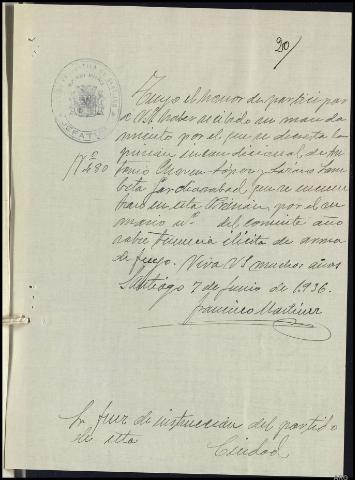 20/
Tengo el honor de participar
a VS haber recibido un manda
miento por el que se decreta la
prisión incondicional de An
tonio Moren López y Lázaro
que se encuen
tran en esta Prisión, por el su
mario nº del corriente año
sobre tenencia ilícita de arma
de fuego. Viva VS muchos años
Santiago 7 de Junio de 1.936.
Francisco Martínez
Nº
480
JEFATURA
Sr Juez de instrucción del partido
de esta
Ciudad